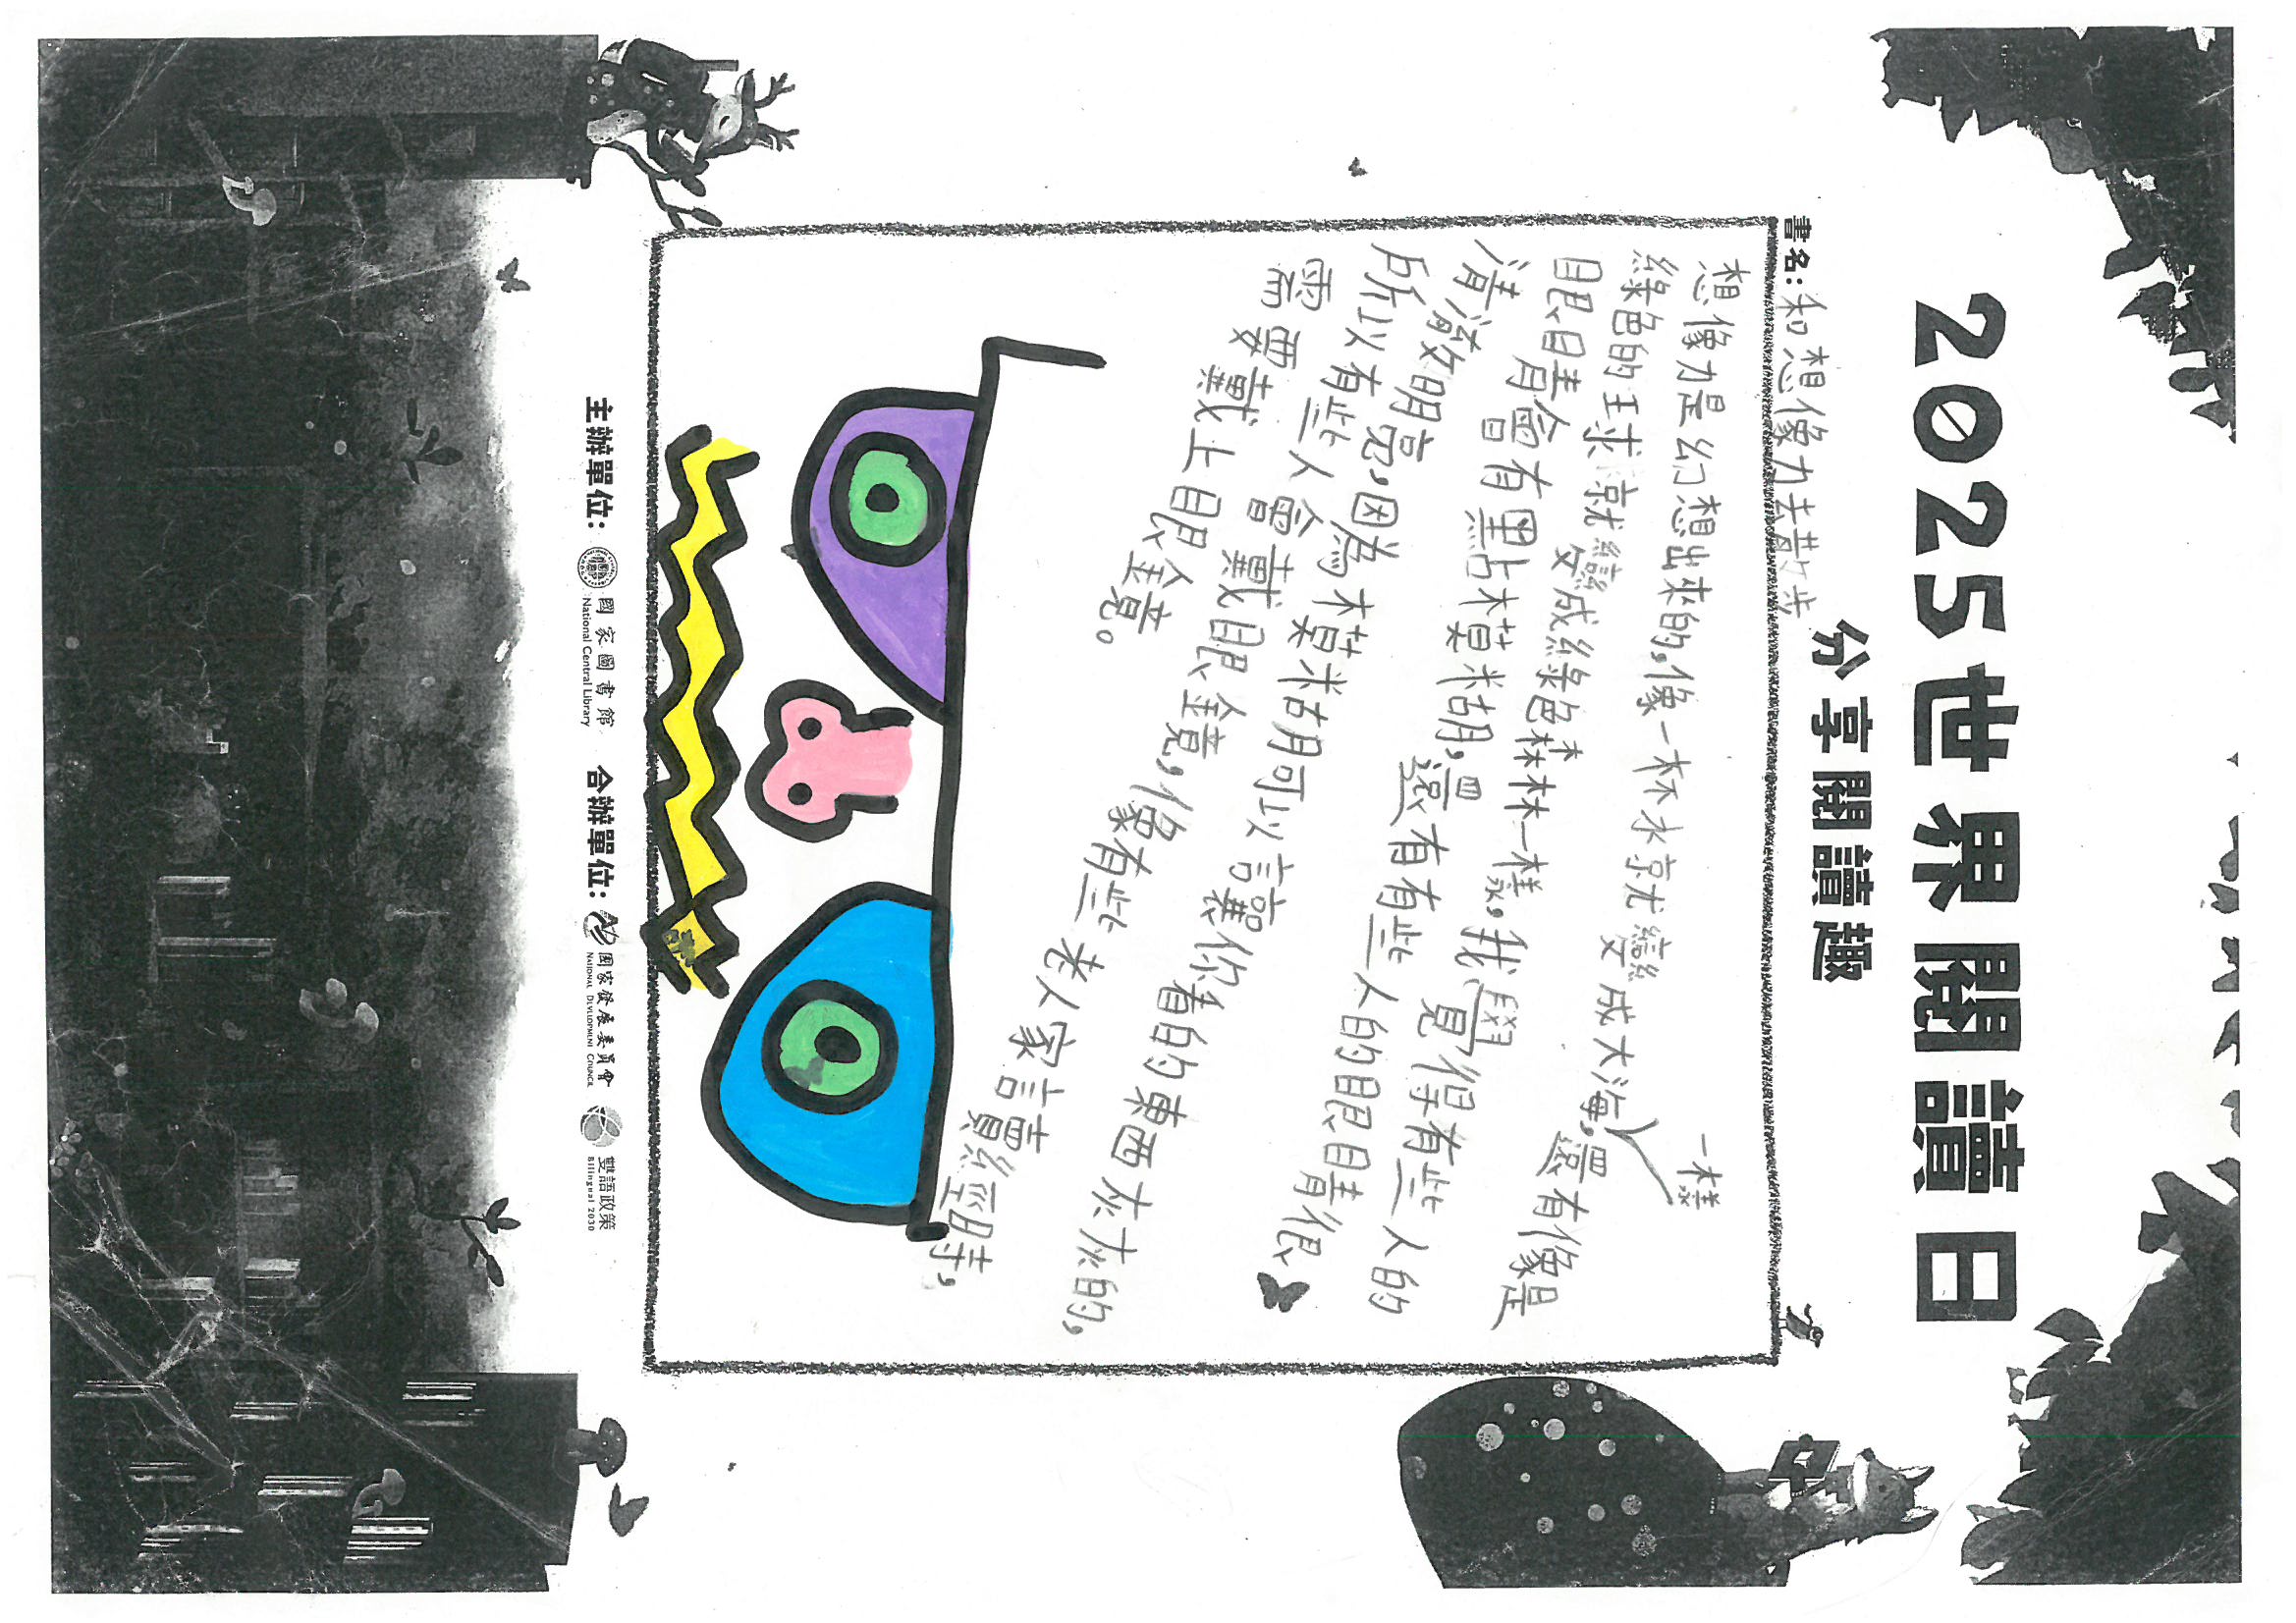 2025世界閱讀日
分享閱讀趣
書名：和想像力去散步
想像力是幻想出來的，像一杯水就變成大海一樣，還有像是
綠色的球就變成綠色森林一樣，我覺得有些人的
眼睛會有點模糊，還有有些人的眼睛很
清澈明亮，因為模糊可以讓你看的東西灰灰的，
所以有些人會戴眼鏡，像有些老人家讀經時，
需要戴上眼鏡。
主辦單位：
國家圖書館
National Central Library
合辦單位：
國家發展委員會
NATIONAL DEVELOPMENT COUNCIL
雙語政策
Bilingual 2030